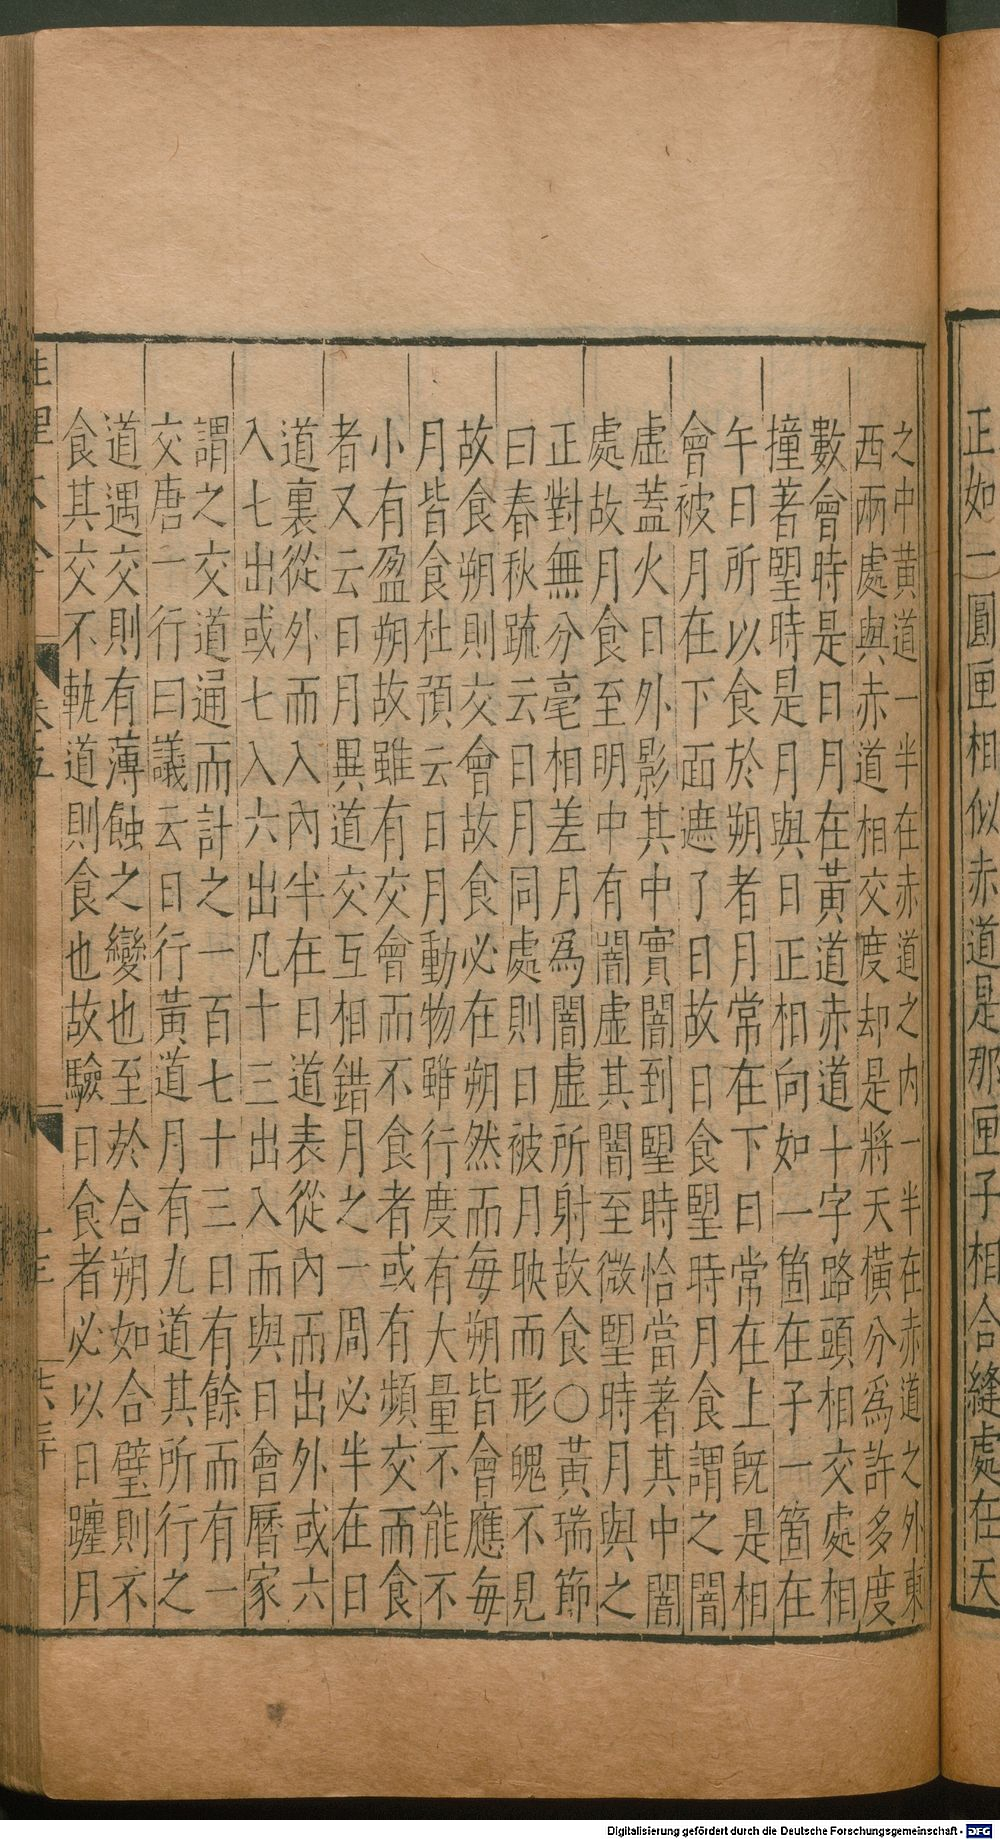 正如一圓匣相似赤道是那匣子相合縫處在天
之中黃道一半在赤道之内一半在赤道之外東
西兩處與赤道相交度却是將天橫分爲許多度
數會時是日月在黃道赤道十字路頭相交處相
撞著朢時是月與日正相向如一箇在子一箇在
午日所以食於朔者月常在下日常在上旣是相
會被月在下面遮了日故日食朢時月食謂之闇
虛蓋火日外影其中實闇到朢時恰當著其中闇
處故月食至明中有闇虛其闇至微朢時月與之
正對無分毫相差月爲闇虛所射故食○黃瑞節
曰春秋䟽云日月同處則日被月映而形魄不見
故食朔則交會故食必在朔然而每朔皆會應每
月皆食杜預云日月動物雖行度有大量不能不
小有盈朔故雖有交會而不食者或有頻交而食
者又云日月異道交互相錯月之一周必半在日
道裏從外而入內半在日道表從內而出外或六
入七出或七入六出凡十三出入而與日會曆家
謂之交道通而計之一百七十三日有餘而有一
交唐一行曰議云日行黃道月有九道其所行之
道遇交則有薄蝕之變也至於合朔如合璧則不
食其交不軌道則食也故驗日食者必以日躔月
性理大全
卷五